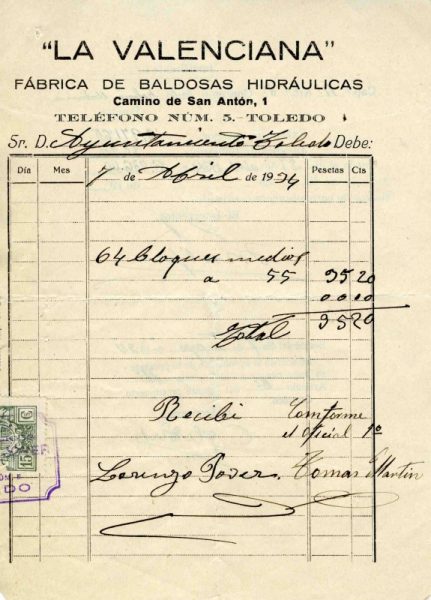 "LA VALENCIANA"
FÁBRICA DE BALDOSAS HIDRÁULICAS
Camino de San Antón, 1
TELÉFONO NÚM. 5.-TOLEDO
Sr. D. Ayuntamiento Toledo Debe:
Día Mes 7 de Abril de 1934 Pesetas Cts
64 bloques medios
a 55 35 20
00 00
Total 35 20
Recibi Comforme
el oficial 1º
Lorenzo Tomas Martin
15 C
DO